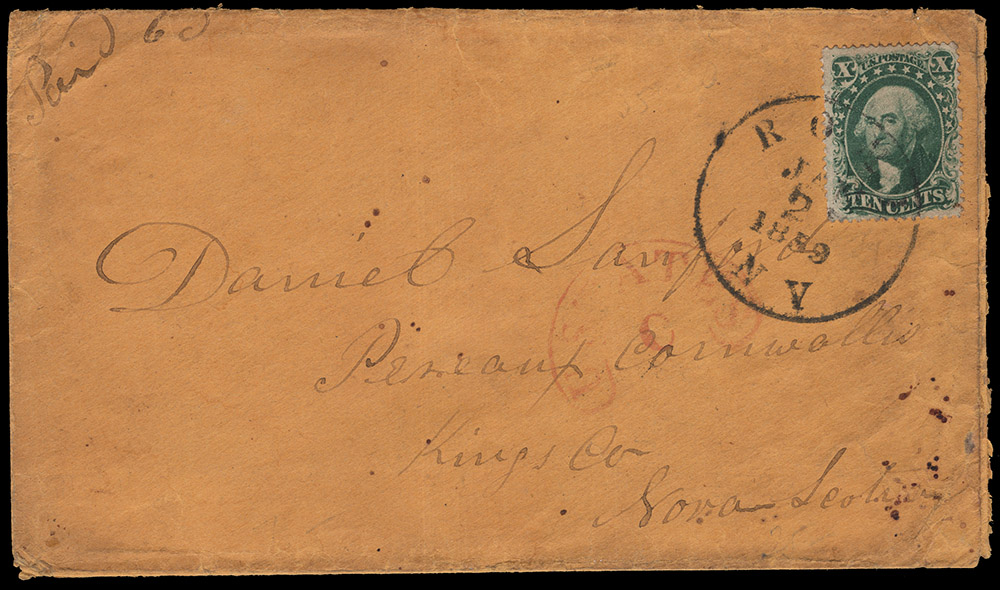 Paid
X U.S. POSTAGE X
TEN CENTS
R O
2
1859
V A
Daniel Sanford
Pereaux Cornwallis
Kings Co
Nova Scotia